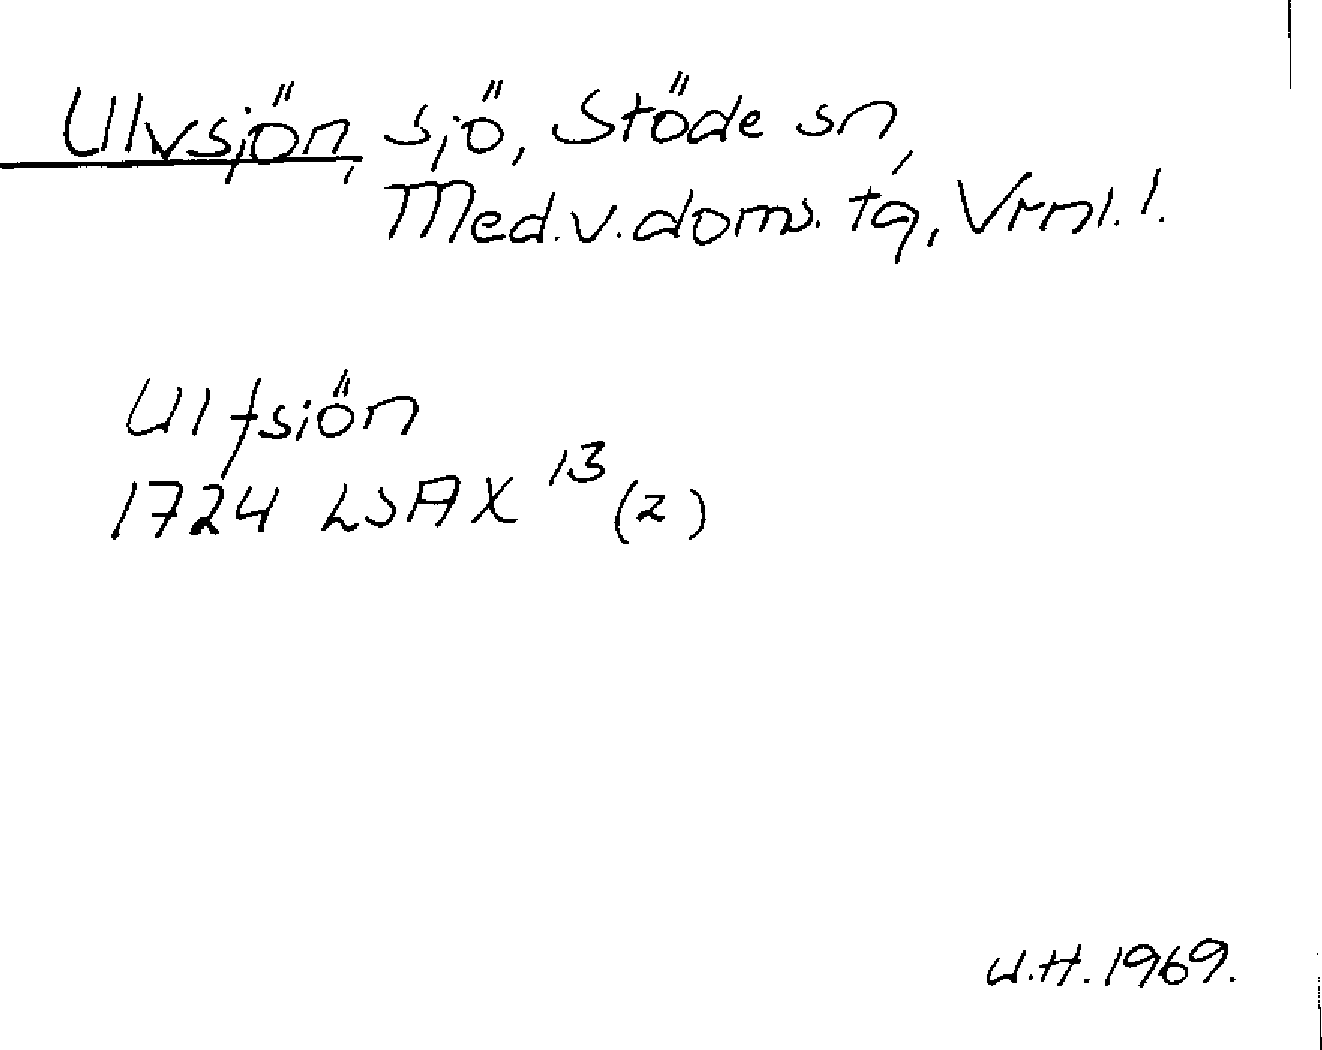 Ulvsjön, sjö, Stöde sn,
Med.v.doms. tg, Vrnl. l.
Ulfsiön
1724 LSA X 13 (2)
U.H. 1969.